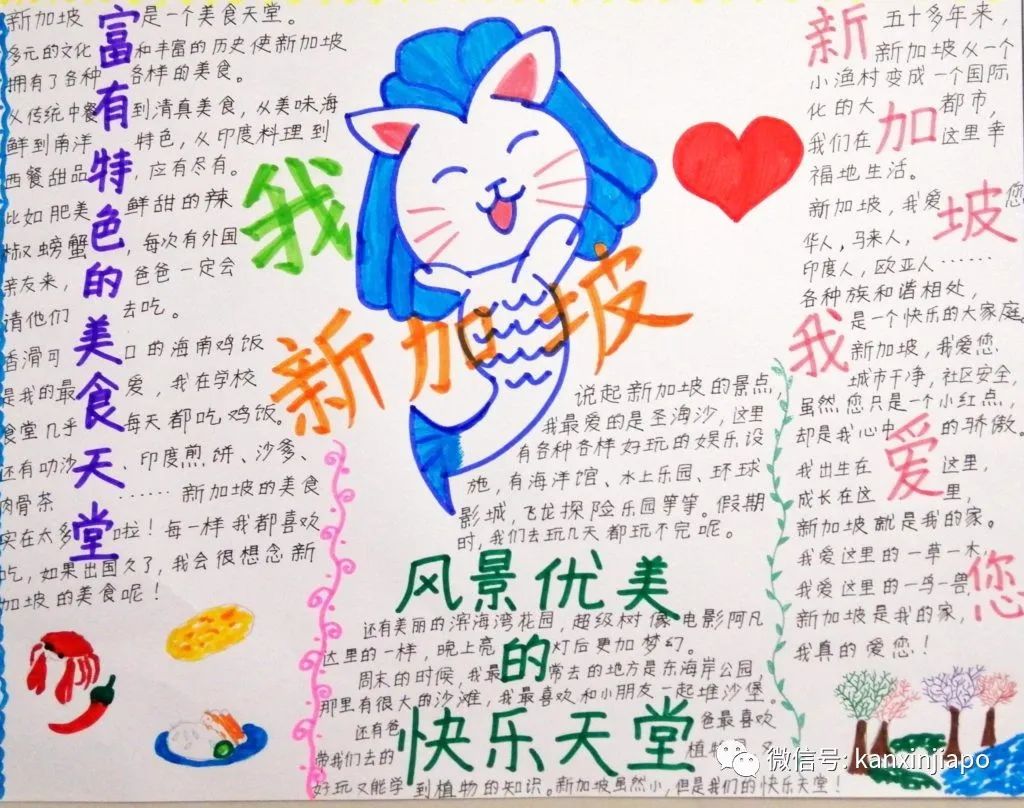 富有特色的美食天堂
新加坡是一个美食天堂。
多元的文化和丰富的历史使新加坡
拥有了各种各样的美食。
从传统中餐到清真美食，从美味海
鲜到南洋特色，从印度料理到
西餐甜品，应有尽有。
比如肥美鲜甜的辣
椒螃蟹，每次有外国
亲友来，爸爸一定会
请他们去吃。
香滑可口的海南鸡饭
是我的最爱，我在学校
食堂几乎每天都吃鸡饭。
还有叻沙、印度煎饼、沙爹、
肉骨茶……新加坡的美食
实在太多啦！每一样我都喜欢
吃，如果出国久了，我会很想念新
加坡的美食呢！
我
新加坡
说起新加坡的景点，
我最爱的是圣淘沙，这里
有各种各样好玩的娱乐设
施，有海洋馆、水上乐园、环球
影城，飞龙探险乐园等等。假期
时，我们去玩几天都玩不完呢。
风景优美
的
快乐天堂
还有美丽的滨海湾花园，超级树像电影阿凡
这里的一样，晚上亮灯后更加梦幻。
周末的时候，我最常去的地方是东海岸公园，
那里有很大的沙滩，我最喜欢和小朋友一起堆沙堡。
还有爸爸最喜欢
带我们去的植物
好玩又能学到植物的知识。新加坡虽然小，但是我们的快乐天堂！
新加坡我爱您
五十多年来，
新加坡从一个
小渔村变成一个国际
化的大都市，
我们在这里幸
福地生活。
新加坡，我爱您
华人，马来人，
印度人，欧亚人……
各种族和谐相处，
是一个快乐的大家庭。
新加坡，我爱您
城市干净，社区安全，
虽然您只是一个小红点，
却是我心中的骄傲。
我出生在这里，
成长在这里，
新加坡就是我的家。
我爱这里的一草一木，
我爱这里的一鸟一兽，
新加坡是我的家，
我真的爱您！
微信号: kanxinjiapo